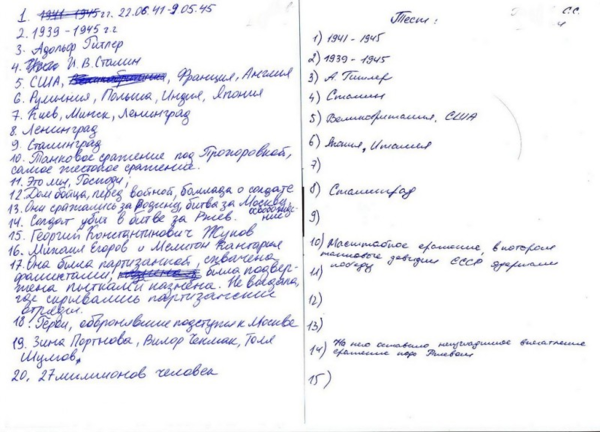 1. 1941 - 1945 гг. 22.06.41-9.05.45
2. 1939 - 1945 г.г
3. Адольф Гитлер
4. И. В. Сталин
5. США, Великобритания, Франция, Англия
6. Румыния, Польша, Индия, Япония
7. Киев, Минск, Ленинград
8. Ленинград
9. Сталинград
10. Танковое сражение под Прохоровкой,
самое жестокое сражение.
11. Это мы, Господи!
12. Дом бойца, перед войной, баллада о солдате
13. Они сражались за Родину, битва за Москву,
14. Солдат убит в битве за Ржев.
15. Георгий Константинович Жуков
16. Михаил Егоров и Мелитон Кантария
17. Она была партизанкой, схвачена
фашистами, была подвер-
жена пыткам и казнена. Не выдала,
где скрывались партизанские
отряды.
18. Герои, оборонявшие подступы к Москве
19. Зина Портнова, Вилор Чекмак, Толя
Шумов,
20. 27 миллионов человек
Тест:
С.С.
1) 1941 - 1945
2) 1939 - 1945
3) А Гитлер
4) Сталин
5) Великобритания, США
6) Япония, Италия
7)
8) Сталинград
9)
10) Масштабное сражение, в котором
танковые заводы СССР одержали
победу
11)
12)
13)
14) На него оставило неизгладимое впечатление
сражение под Ржевом
15)